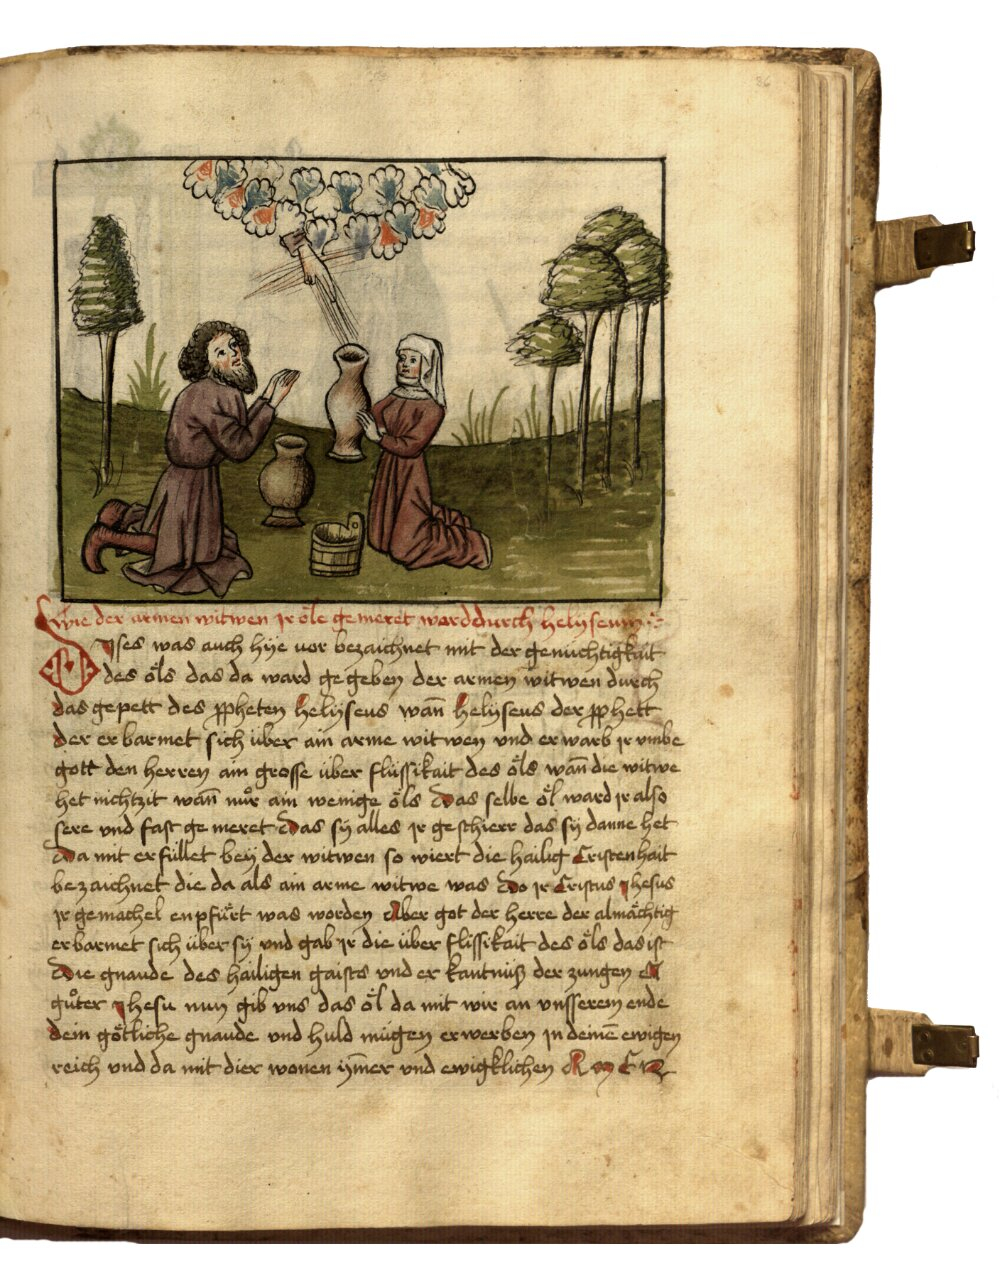 86
Wie der armen witwen jr öle gemeret ward durch helyseum
Dises was auch hye vor bezaichnet mit der genüchtigkait
des öls das da ward gegeben der armen witwen durch
das gepett des ppheten helyseus wañ helyseus der pphett
der erbarmet sich über ain arme witwen vnd erwarb jr vmbe
gott den herren ain grosse über flüssikait des öls wañ die witwe
het nichtzit wañ nur̊ ain wenige öls das selbe öl ward jr also
sere vnd fast gemeret das sy alles jr geschierr das sy danne het
da mit erfüllet bey der witwen so wiert die hailig Cristenhait
bezaichnet die da als ain arme witwe was do jr Cristus jhesus
jr gemachel enpfürt was worden Aber got der herre der almächtig
erbarmet sich über sy vnd gab jr die über flüssikait des öls das ist
die gnaude des hailigen gaists vnd erkantnüß der zungen
gůter jhesu nun gib vns das öl da mit wir an vnsserem ende
dein götliche gnaude vnd huld mügen erwerben in deinē ewigen
reich vnd da mit dier wonen ÿmer vnd ewigklichen Amen